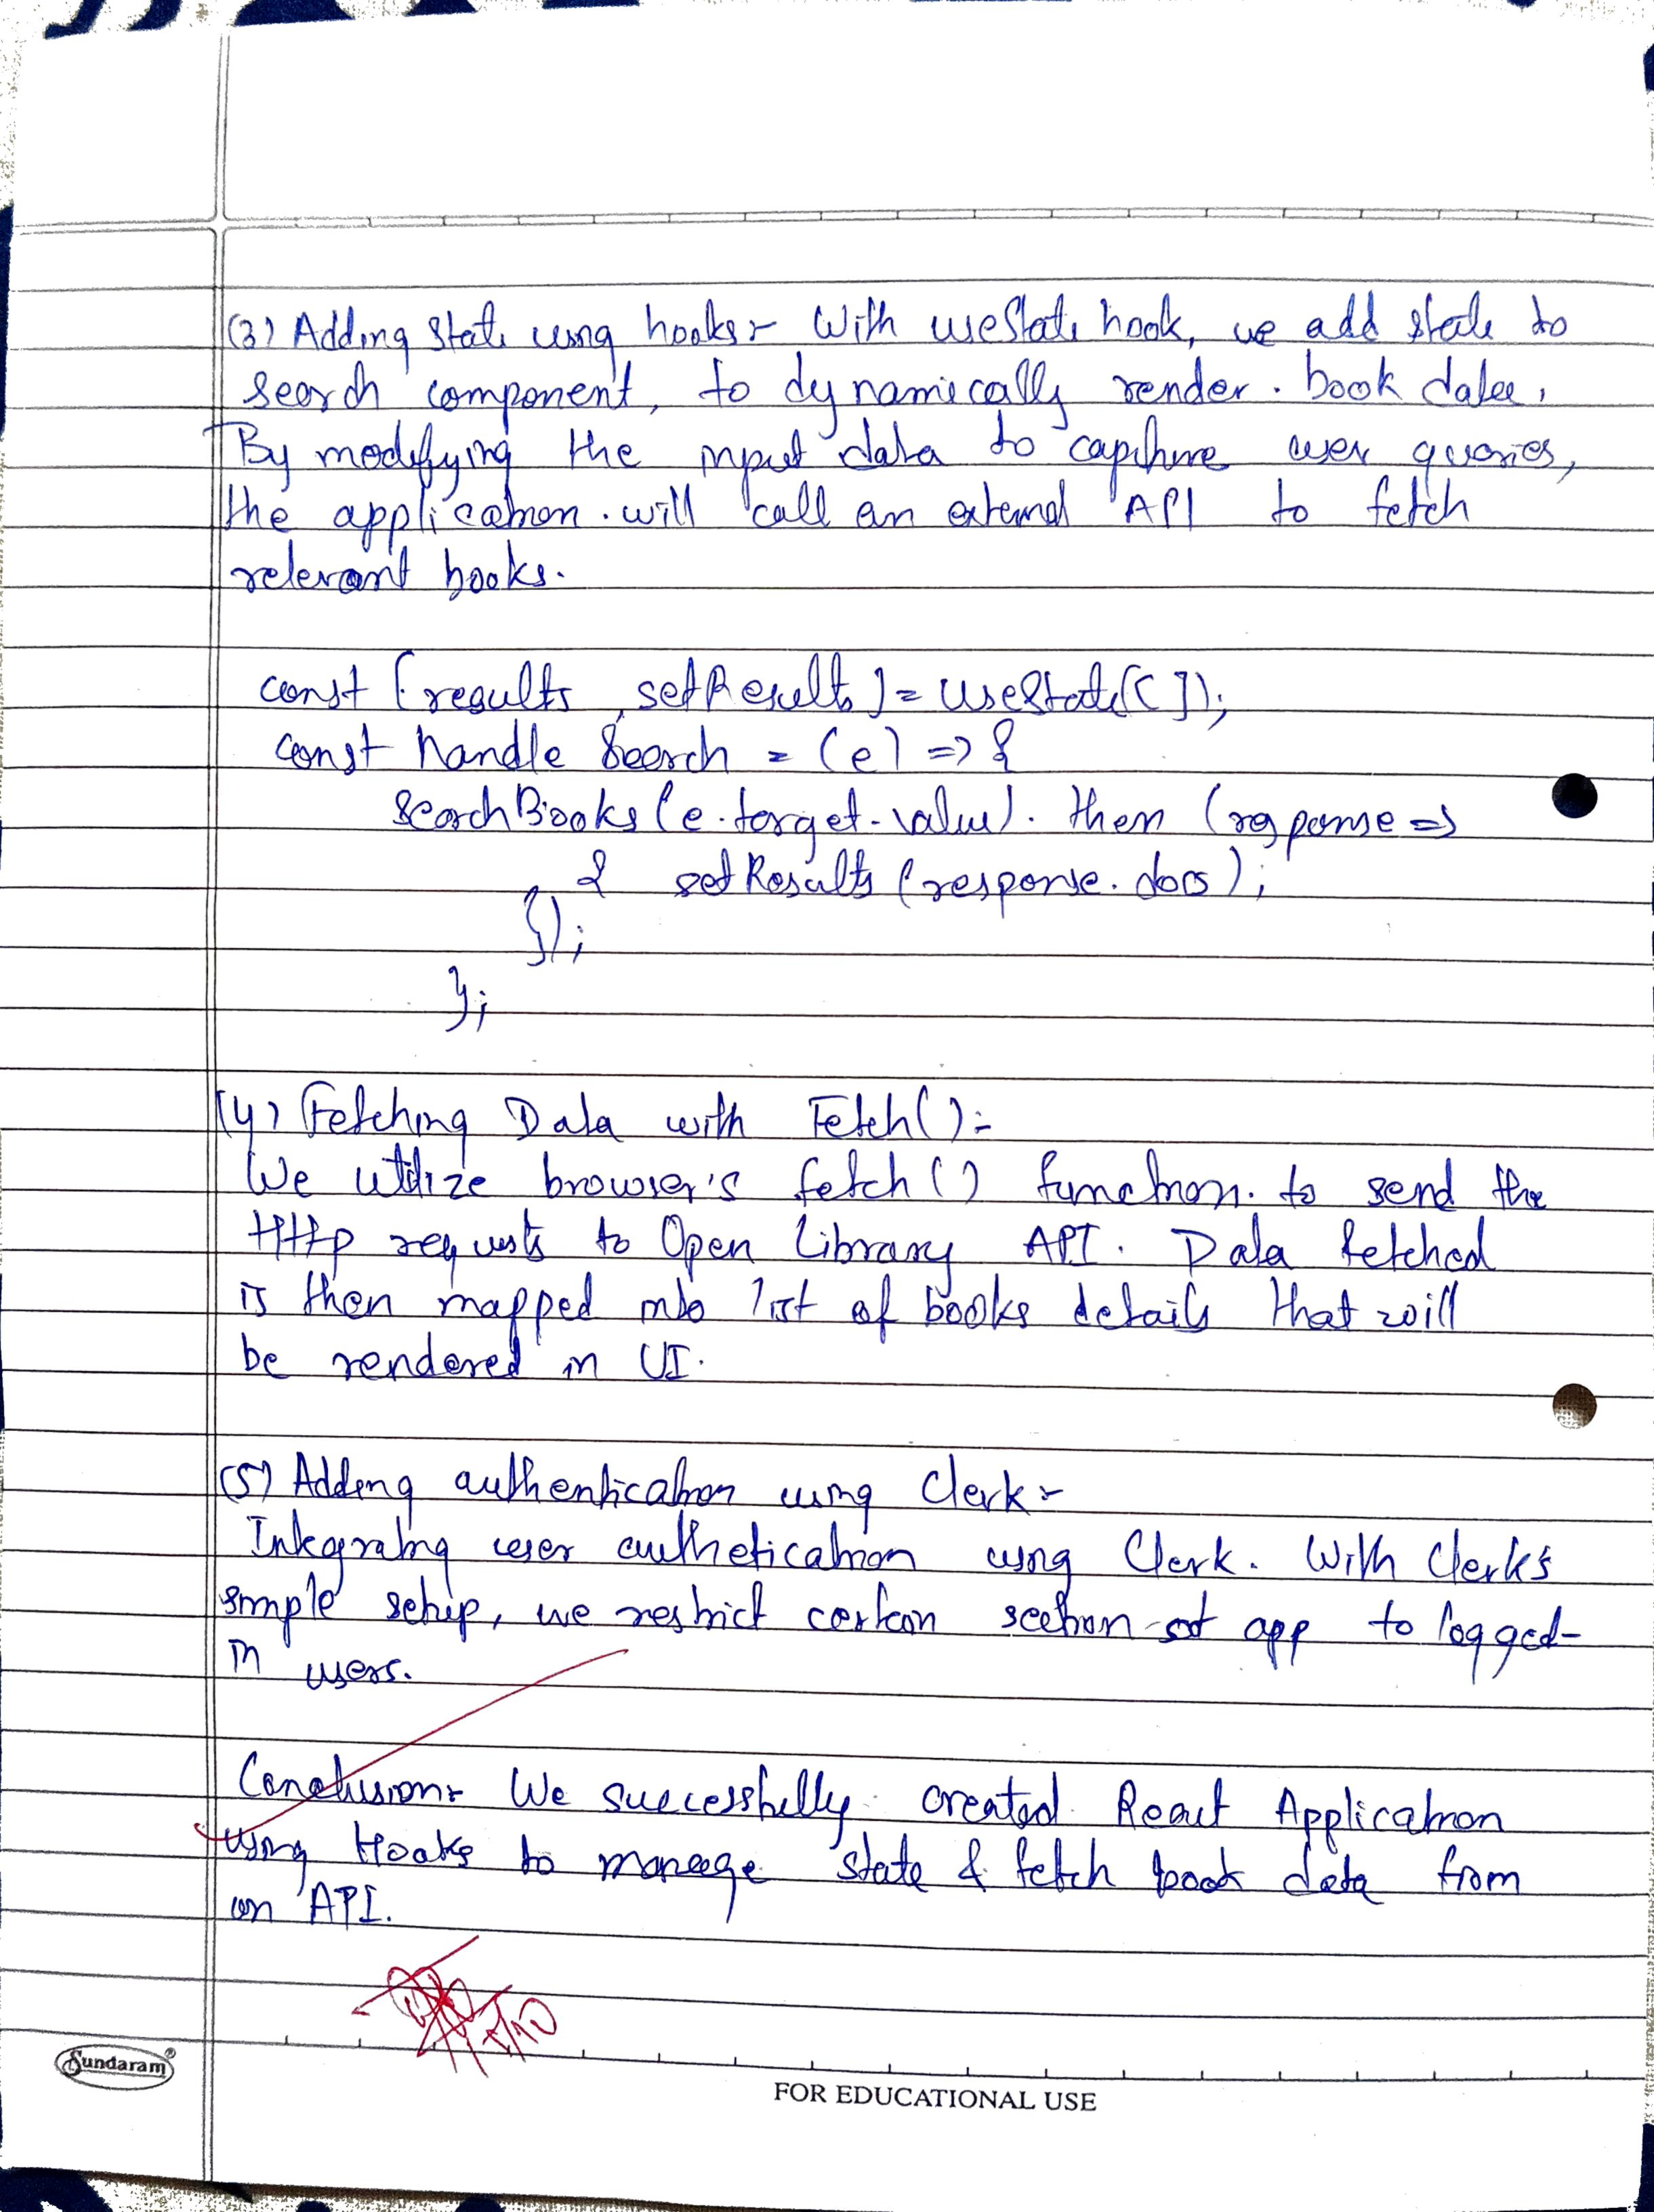 (3) Adding state using hooks :- With useState hook, we add state to
search component, to dynamically render. book data.
By modifying the input data to capture user queries,
the application. will call an external API to fetch
relevant books.
const [results, setResults] = useState([]);
const handle Search = (e) => {
searchBooks (e.target.value). then (response =>
{ setResults (response.docs);
});
};
(4) Fetching Data with Fetch() :-
We utilize browser's fetch () function. to send the
Http requests to Open Library API. Data fetched
is then mapped into list of books details that will
be rendered in UI.
(5) Adding authentication using Clerk :-
Integrating user authetication using Clerk. With Clerk's
simple setup, we restrict certain section of app to logged-
in users.
Conclusion :- We successfully created React Application
using Hooks to manage state & fetch book data from
an API.
Sundaram®
FOR EDUCATIONAL USE